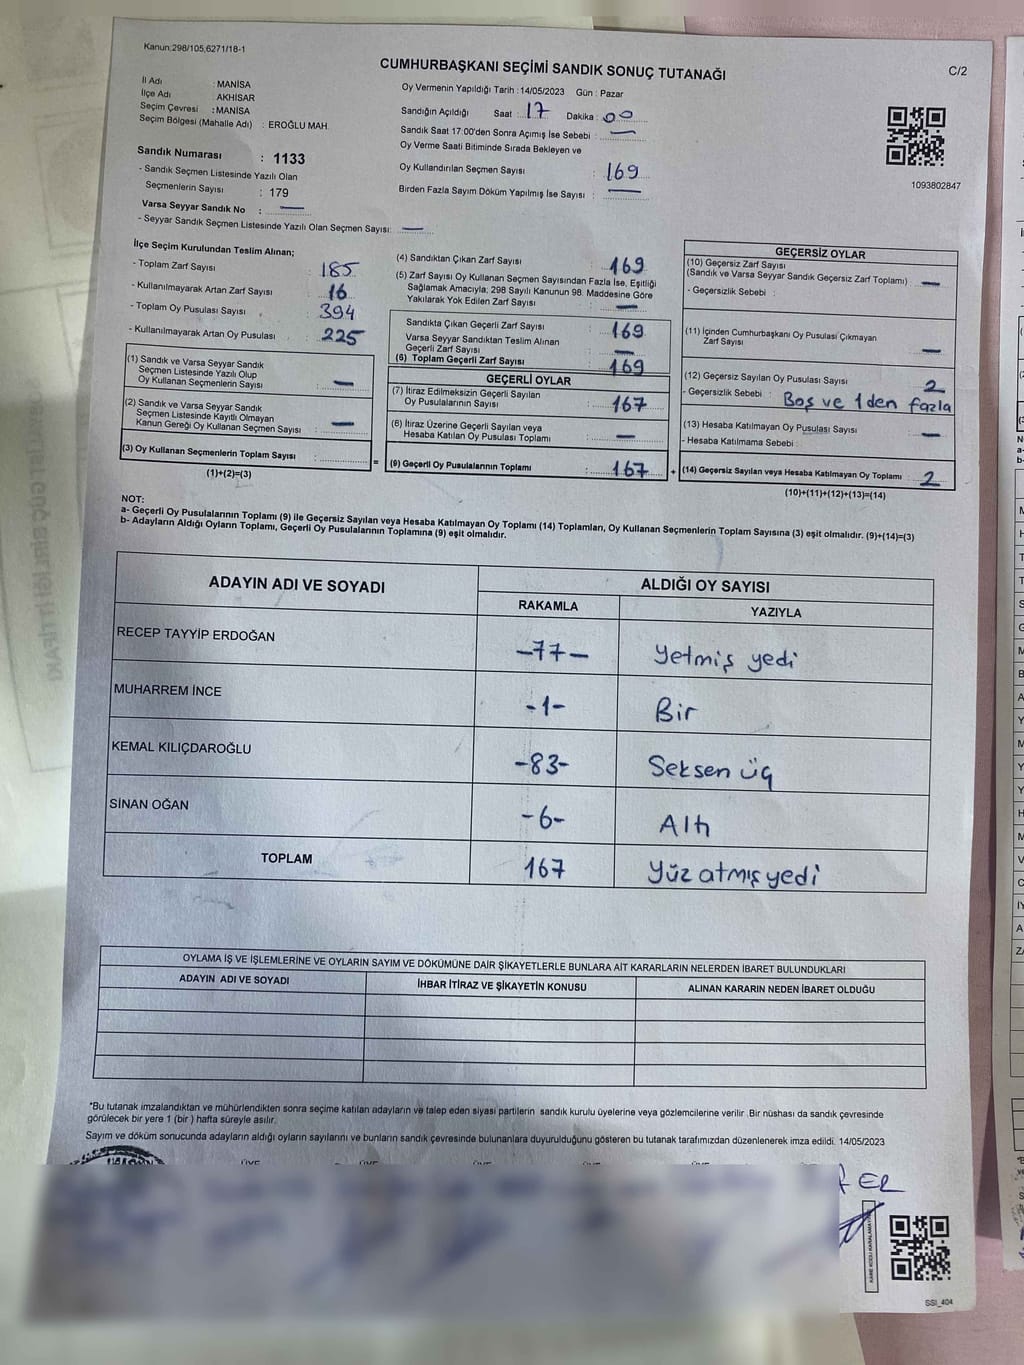 Kanun;298/105,6271/18-1
CUMHURBAŞKANI SEÇİMİ SANDIK SONUÇ TUTANAĞI
C/2
İl Adı : MANİSA
İlçe Adı : AKHİSAR
Seçim Çevresi : MANİSA
Seçim Bölgesi (Mahalle Adı) : EROĞLU MAH.
Oy Vermenin Yapıldığı Tarih :14/05/2023 Gün : Pazar
Sandığın Açıldığı Saat : 17 Dakika : 00
Sandık Saat 17:00'den Sonra Açımış İse Sebebi : —
Oy Verme Saati Bitiminde Sırada Bekleyen ve
Oy Kullandırılan Seçmen Sayısı : 169
Birden Fazla Sayım Döküm Yapılmış İse Sayısı : —
1093802847
Sandık Numarası : 1133
- Sandık Seçmen Listesinde Yazılı Olan
Seçmenlerin Sayısı : 179
Varsa Seyyar Sandık No : —
- Seyyar Sandık Seçmen Listesinde Yazılı Olan Seçmen Sayısı: —
İlçe Seçim Kurulundan Teslim Alınan;
- Toplam Zarf Sayısı : 185
- Kullanılmayarak Artan Zarf Sayısı : 16
- Toplam Oy Pusulası Sayısı : 394
- Kullanılmayarak Artan Oy Pusulası : 225
(1) Sandık ve Varsa Seyyar Sandık
Seçmen Listesinde Yazılı Olup
Oy Kullanan Seçmenlerin Sayısı : —
(2) Sandık ve Varsa Seyyar Sandık
Seçmen Listesinde Kayıtlı Olmayan
Kanun Gereği Oy Kullanan Seçmen Sayısı : —
(3) Oy Kullanan Seçmenlerin Toplam Sayısı :
(1)+(2)=(3)
=
(4) Sandıktan Çıkan Zarf Sayısı : 169
(5) Zarf Sayısı Oy Kullanan Seçmen Sayısından Fazla İse, Eşitliği
Sağlamak Amacıyla; 298 Sayılı Kanunun 98. Maddesine Göre
Yakılarak Yok Edilen Zarf Sayısı : —
Sandıkta Çıkan Geçerli Zarf Sayısı : 169
Varsa Seyyar Sandıktan Teslim Alınan
Geçerli Zarf Sayısı : —
(6) Toplam Geçerli Zarf Sayısı : 169
GEÇERLİ OYLAR
(7) İtiraz Edilmeksizin Geçerli Sayılan
Oy Pusulalarının Sayısı : 167
(8) İtiraz Üzerine Geçerli Sayılan veya
Hesaba Katılan Oy Pusulası Toplamı : —
(9) Geçerli Oy Pusulalarının Toplamı : 167
+
GEÇERSİZ OYLAR
(10) Geçersiz Zarf Sayısı
(Sandık ve Varsa Seyyar Sandık Geçersiz Zarf Toplamı) : —
- Geçersizlik Sebebi :
(11) İçinden Cumhurbaşkanı Oy Pusulası Çıkmayan
Zarf Sayısı : —
(12) Geçersiz Sayılan Oy Pusulası Sayısı : 2
- Geçersizlik Sebebi : Boş ve 1den fazla
(13) Hesaba Katılmayan Oy Pusulası Sayısı : —
- Hesaba Katılmama Sebebi :
(14) Geçersiz Sayılan veya Hesaba Katılmayan Oy Toplamı : 2
(10)+(11)+(12)+(13)=(14)
NOT:
a- Geçerli Oy Pusulalarının Toplamı (9) ile Geçersiz Sayılan veya Hesaba Katılmayan Oy Toplamı (14) Toplamları, Oy Kullanan Seçmenlerin Toplam Sayısına (3) eşit olmalıdır. (9)+(14)=(3)
b- Adayların Aldığı Oyların Toplamı, Geçerli Oy Pusulalarının Toplamına (9) eşit olmalıdır.
ADAYIN ADI VE SOYADI ALDIĞI OY SAYISI
RAKAMLA YAZIYLA
RECEP TAYYİP ERDOĞAN -77- Yetmiş yedi
MUHARREM İNCE -1- Bir
KEMAL KILIÇDAROĞLU -83- Seksen üç
SİNAN OĞAN -6- Altı
TOPLAM 167 Yüz atmış yedi
OYLAMA İŞ VE İŞLEMLERİNE VE OYLARIN SAYIM VE DÖKÜMÜNE DAİR ŞİKAYETLERLE BUNLARA AİT KARARLARIN NELERDEN İBARET BULUNDUKLARI
ADAYIN ADI VE SOYADI İHBAR İTİRAZ VE ŞİKAYETİN KONUSU ALINAN KARARIN NEDEN İBARET OLDUĞU
*Bu tutanak imzalandıktan ve mühürlendikten sonra seçime katılan adayların ve talep eden siyasi partilerin sandık kurulu üyelerine veya gözlemcilerine verilir .Bir nüshası da sandık çevresinde
görülecek bir yere 1 (bir ) hafta süreyle asılır.
Sayım ve döküm sonucunda adayların aldığı oyların sayılarını ve bunların sandık çevresinde bulunanlara duyurulduğunu gösteren bu tutanak tarafımızdan düzenlenerek imza edildi. 14/05/2023
ER
SSI_404